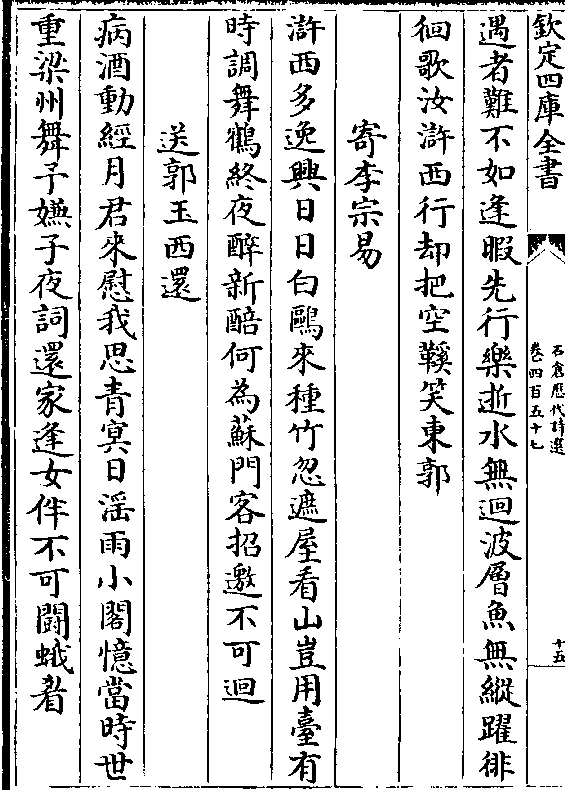 欽定四庫全書
石倉歷代詩選
卷四百五十七
十五
遇者難不如逢暇先行樂逝水無迴波層魚無縱躍徘
徊歌汝滸西行却把空鞵笑東郭
寄李宗易
滸西多逸興日日白鷗來種竹忽遮屋看山豈用臺有
時調舞鶴終夜醉新醅何為蘇門客招邀不可迴
送郭玉西還
病酒動經月君來慰我思青冥日滛雨小閣憶當時世
重梁州舞予嫌子夜詞還家逢女伴不可鬭蛾眉